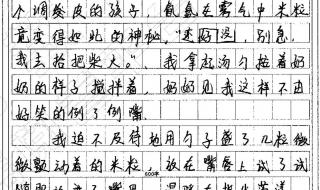 个调类皮的孩子，氤氲在雾气中米粒
竟变得如此的神秘。"还好没，别急，
我去抬把柴火。"我拿起汤勺拉着奶
奶的样子搅拌着，奶奶见我这样不由
好笑的倒了倒嘴。
我迫不及待地用勺子盛了几粒微
微颤动着的米粒，放在嘴唇上试了试
600字